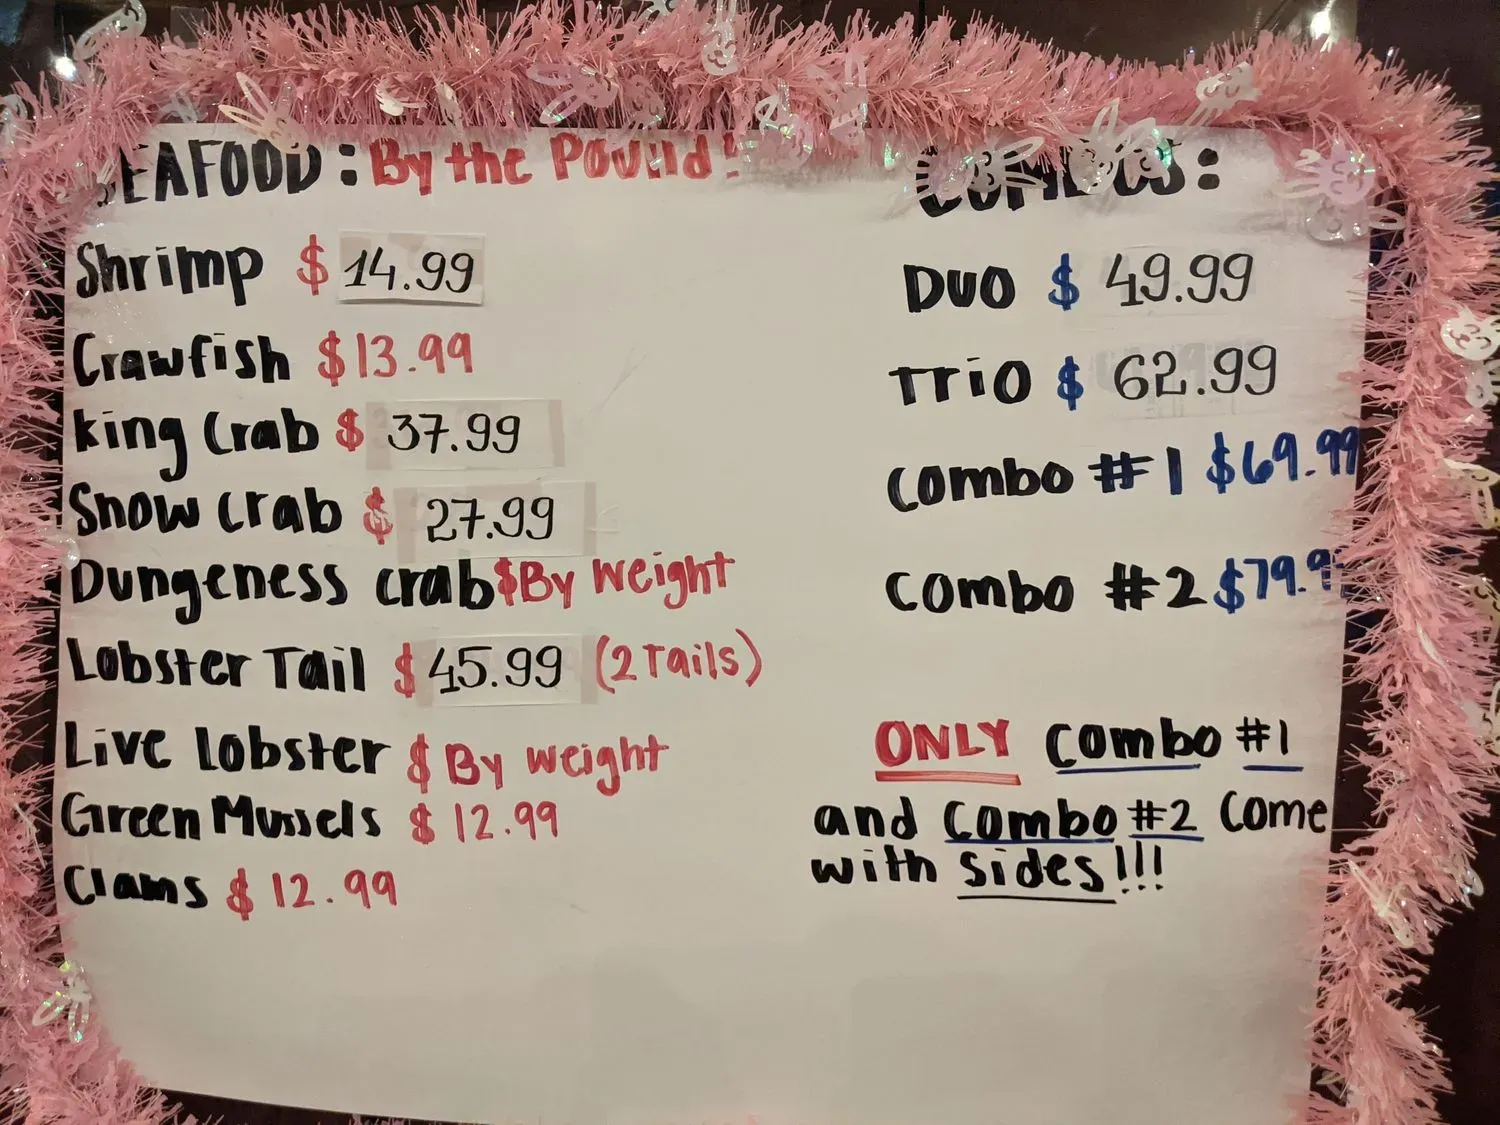 SEAFOOD: By the Pound!
Shrimp $ 14.99
Crawfish $13.99
king Crab $ 37.99
Snow crab $ 27.99
Dungeness crab $By Weight
Lobster Tail $ 45.99 (2 Tails)
Live lobster $ By weight
Green Mussels $ 12.99
Clams $ 12.99
COMBOS:
DUO $ 49.99
TriO $ 62.99
Combo #1 $69.99
Combo #2 $79.9
ONLY Combo #1
and Combo #2 Come
with sides!!!